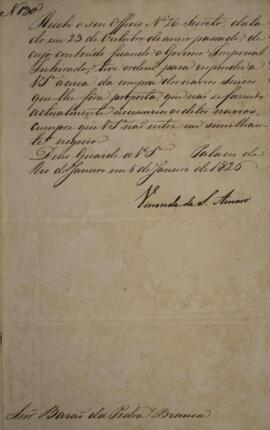 Nº 30
Recebo o seu Officio Nº 76 Secreto, data
do em 23 de Outubro do anno passado, de
cujo conteúdo ficando o Governo Imperial
Inteirado, tive ordem para responder a
VSª acerca da compra dos navios Suecos
que lhe fôra proposta, que não se fazendo
actualmente necessarios os ditos navios,
cumpre que VSª não entre em similhan-
te negocio.
Deus Guarde a VSª Palacio do
Rio de Janeiro em 5 de Janeiro de 1826
Visconde de S. Amaro
Snr. Barão da Pedra Branca